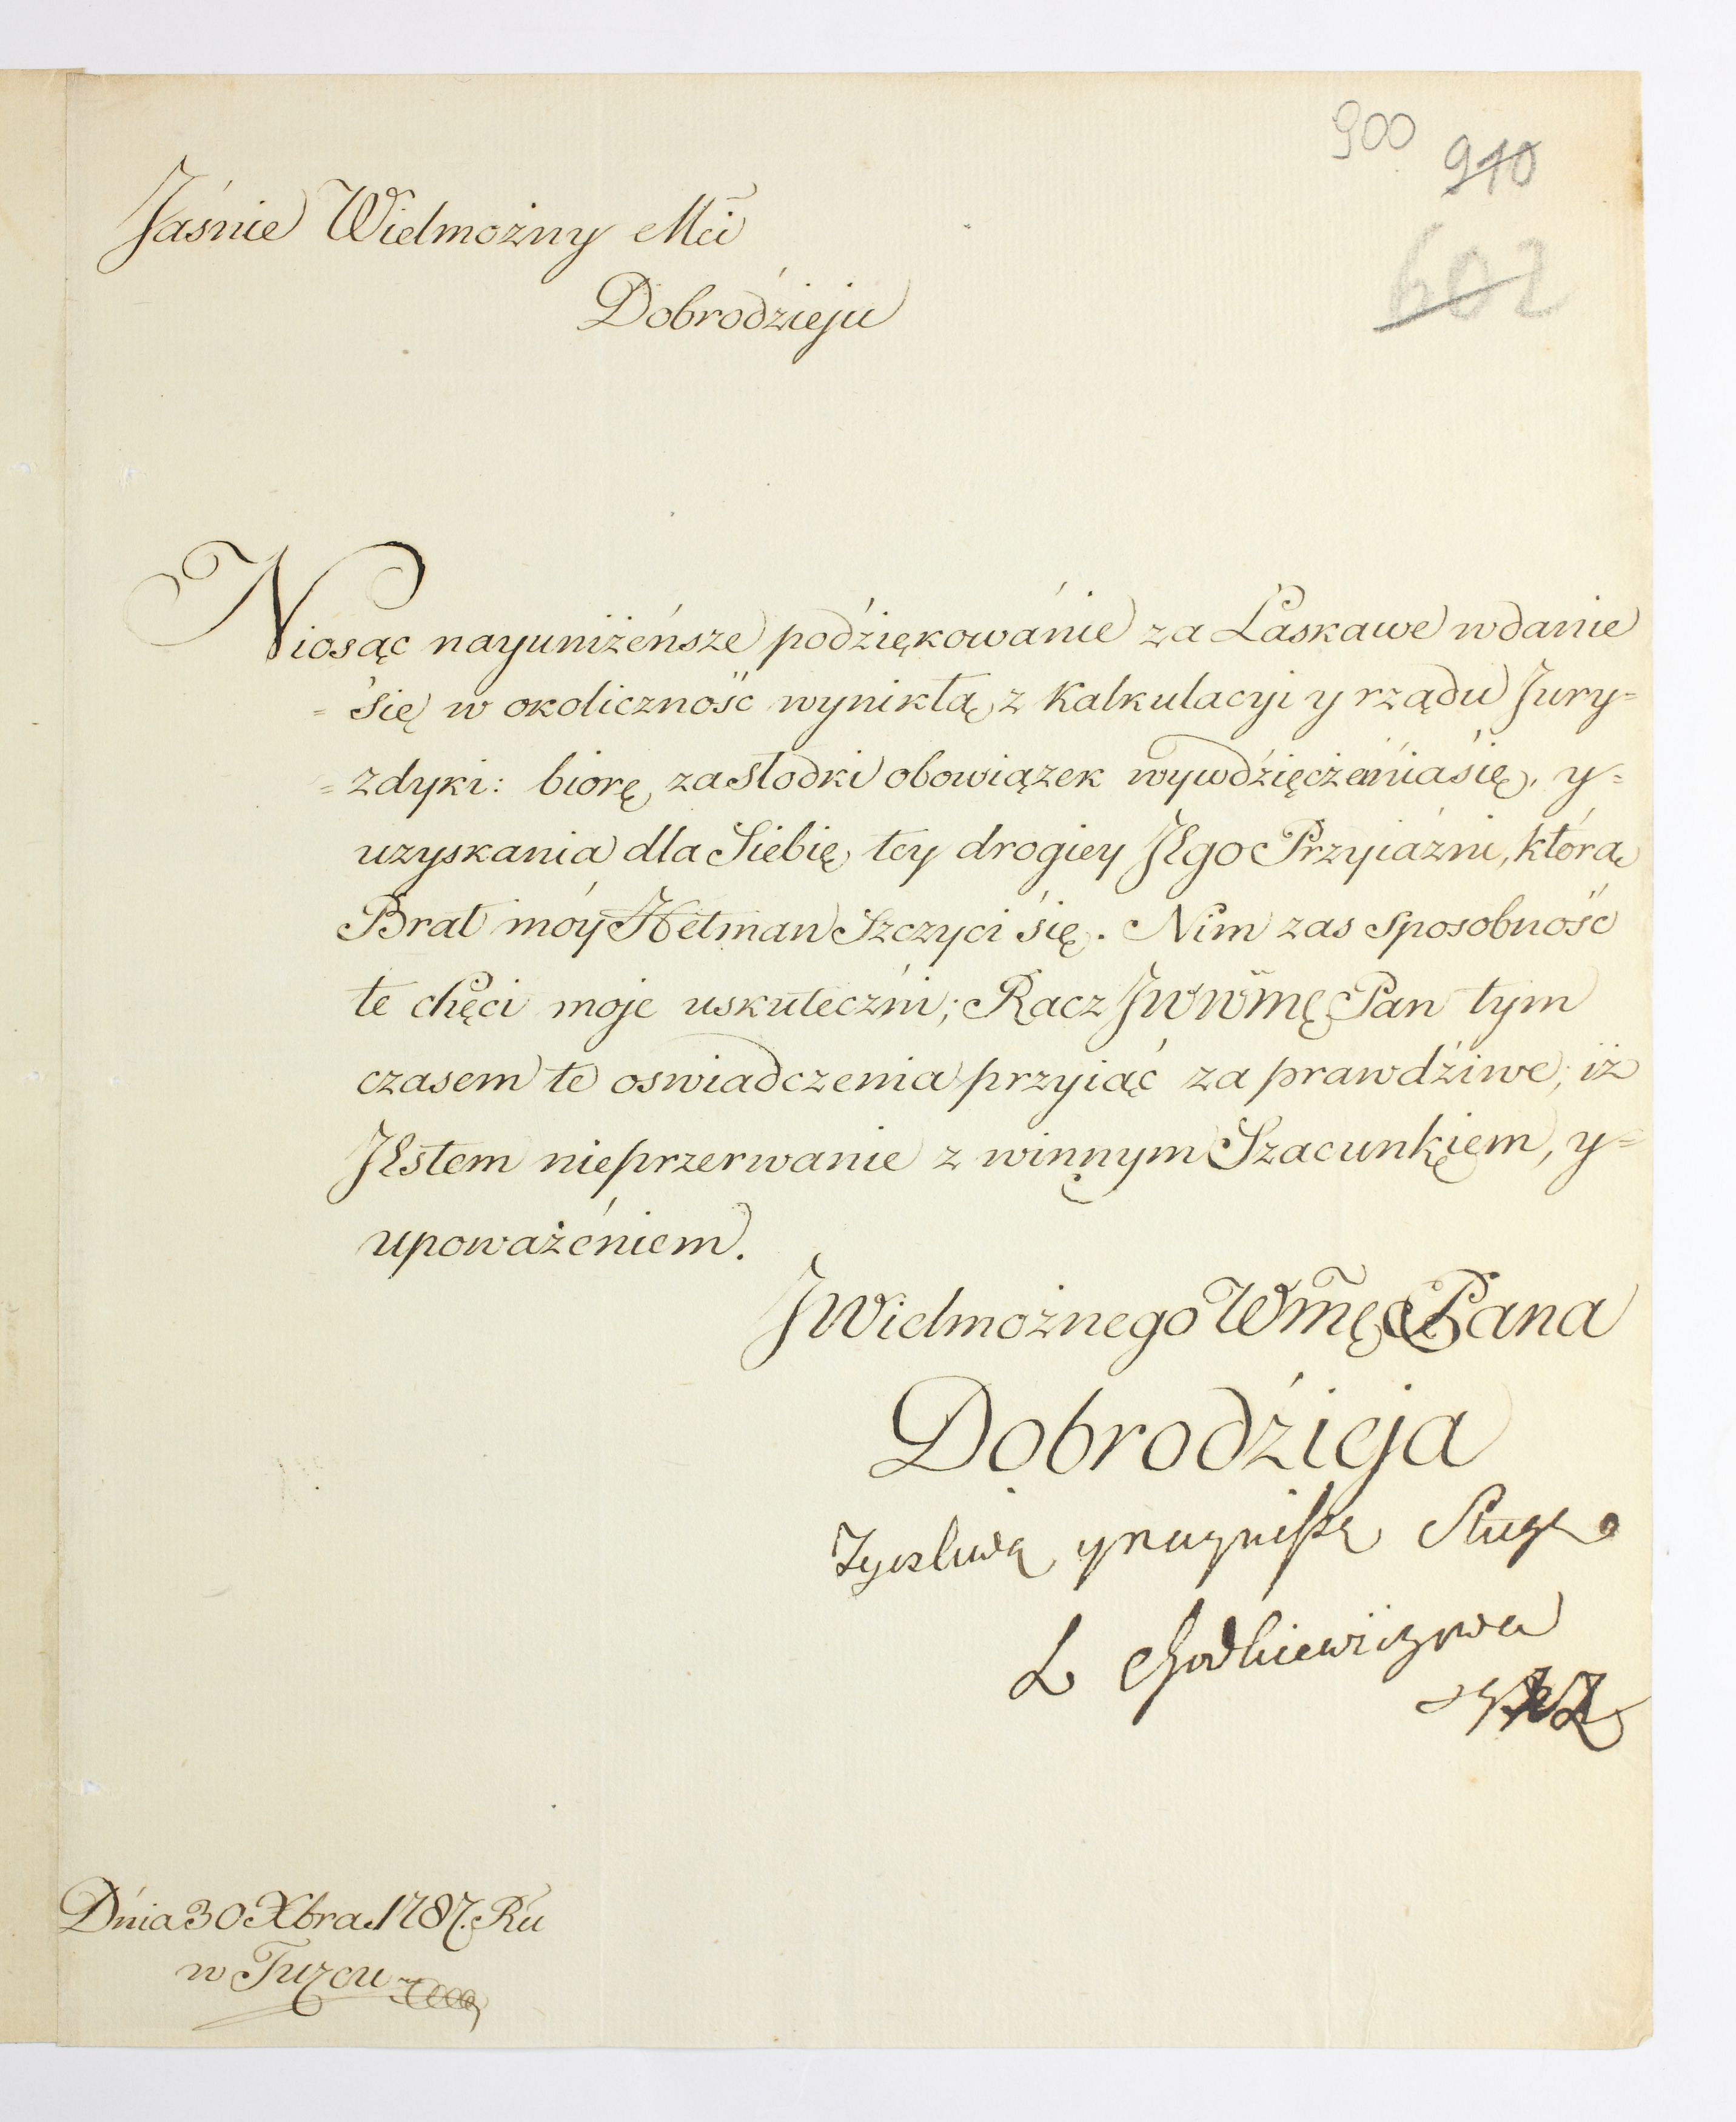 900
910
602
Jaśnie Wielmożny Mći
Dobrodźieju
Niosąc nayuniżeńsze podźiękowánie za Łaskawe wdanie
= się w okoliczność wynikłą z Kalkulacyi y rządu Jury=
= zdyki: biorę za słodki obowiązek wywdźięczeniasię, y=
uzyskania dla Siebię tey drogiey JEgo Przyiaźni, którą
Brat móy Hetman Szczyci się. Nim zas sposobność
te chęci moje uskuteczni; Racz JWWmę Pan tym
czasem te oswiadczenia przyiąć za prawdźiwe; iż
JEstem nieprzerwanie z winnym Szacunkięm, y=
upoważéniem.
JWielmożnego Wmę Pana
Dobrodźieja
Zyczliwą y nayniszą Sługą
L Chodkiewiczowa
Dńia 30 Xbra 1787. Ru
w Turcu